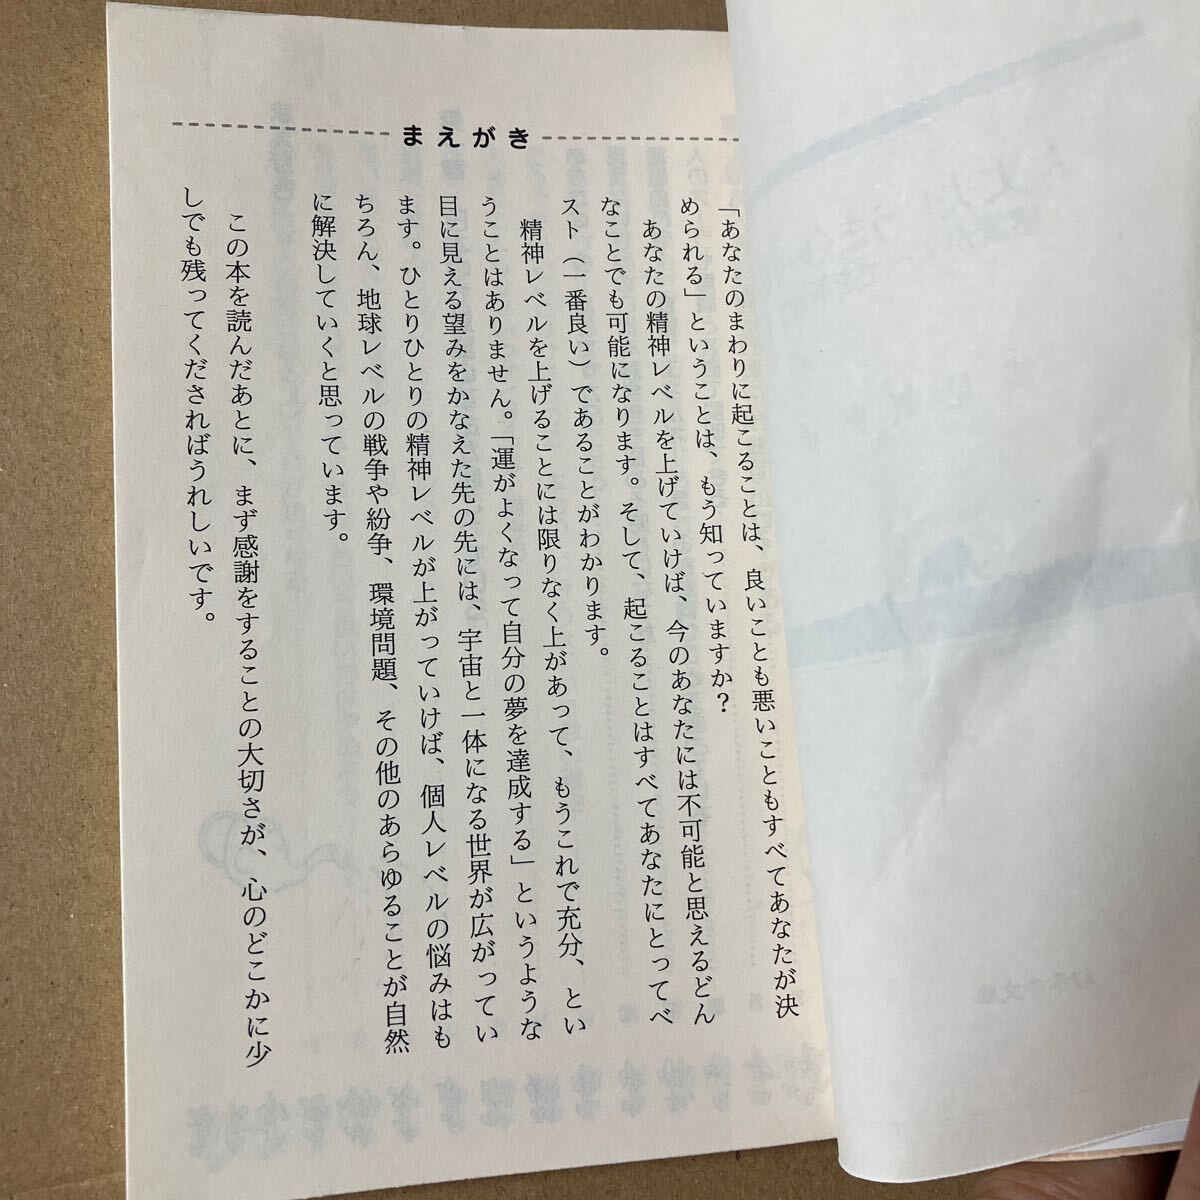 まえがき
「あなたのまわりに起こることは、良いことも悪いこともすべてあなたが決
められる」ということは、もう知っていますか？
あなたの精神レベルを上げていけば、今のあなたには不可能と思えるどん
なことでも可能になります。そして、起こることはすべてあなたにとってベ
スト（一番良い）であることがわかります。
精神レベルを上げることには限りなく上があって、もうこれで充分、とい
うことはありません。「運がよくなって自分の夢を達成する」というような
目に見える望みをかなえた先の先には、宇宙と一体になる世界が広がってい
ます。ひとりひとりの精神レベルが上がっていけば、個人レベルの悩みはも
ちろん、地球レベルの戦争や紛争、環境問題、その他のあらゆることが自然
に解決していくと思っています。
この本を読んだあとに、まず感謝をすることの大切さが、心のどこかに少
しでも残ってくださればうれしいです。